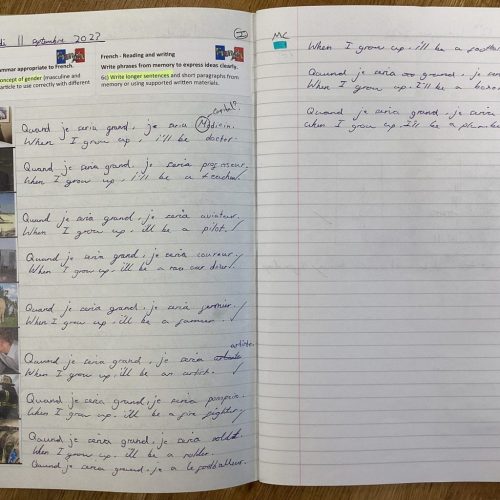 11 septembre 2022
I
mmar appropriate to French.
oncept of gender (masculine and
article to use correctly with different
French - Reading and writing
Write phrases from memory to express ideas clearly.
6c) Write longer sentences and short paragraphs from
memory or using supported written materials.
Quand je seria grand, je seria Médicin.
When I grow up, i'll be doctor.
Quand je seria grand, je seria professeur.
When I grow up, i'll be a teacher
Quand je seria grand, je seria aviateur.
When I grow up, ill be a pilot.
Quand je seria grand, je seria coureur.
When I grow up, ill be a race car driver.
Quand je seria grand, je seria fermier.
When I grow up, ill be a farmer.
artiste.
Quand je seria grand, je seria
When I grow up, ill be an artist.
Quand je seria grand, je seria pompire.
When I grow up, ill be a fire fighter
Quand je seria grand, je seria soldat.
When I grow up, ill be a
Quand je seria grand, je
MC
When I grow up, i'll be a
Quand je seria grand, je se
When I grow up, I'll be a
Quand je seria grand, je seria
When I grow up, I'll be a plumber